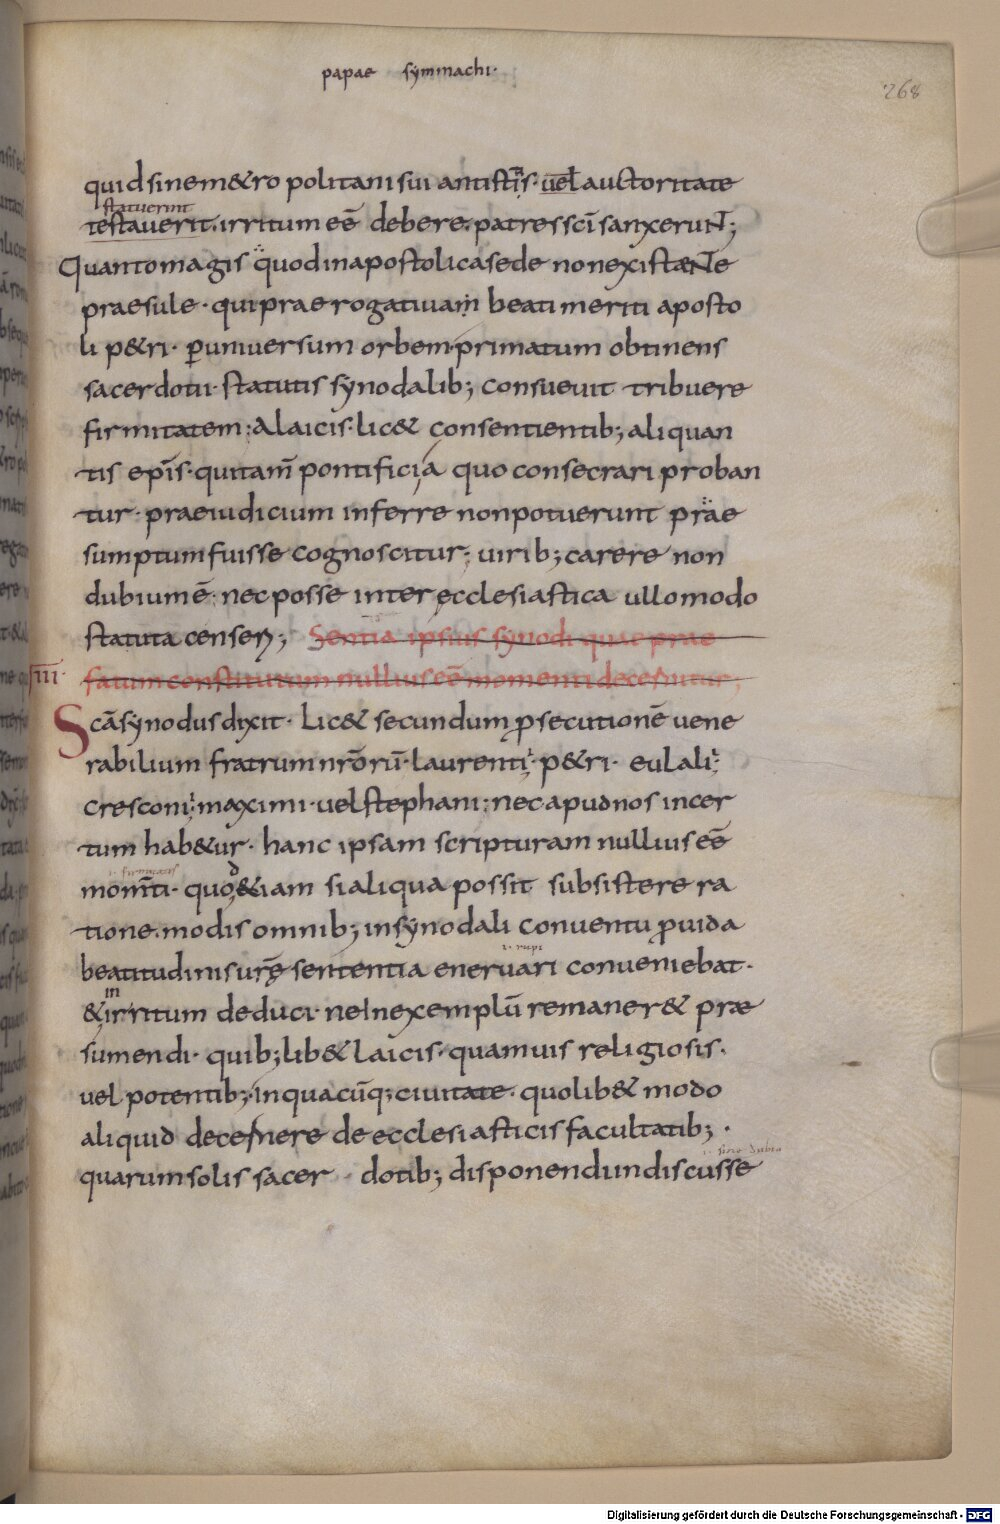 papae symmachi·
268
quid sine m&ropolitani sui antistitis· vel auctoritate
statuerint
testaverit. irritum eē debere. patres scī sanxeruNT;
Quanto magis quod in apostolica sede non existaeNTe
praesule· qui praerogativam beati meriti aposto
li p&ri· p̱ universum orbem primatum obtinens
sacerdotii· statutis synodalib; consuevit tribuere
firmitatem: A laicis· lic& consentientib; aliquan
tis ep̄is· qui tam̄ pontificia quo consecrari proban
tur· praeiudicium inferre non potuerunt prae
sumptum fuisse cognoscitur; virib; carere non
dubium ē; nec posse inter ecclesiastica ullo modo
statuta censeri; Sententia ipsius synodi quae prae
III· fatum constitutum nullius eē momenti decernitur;
Scā synodus dixit· Lic& secundum p̱secutionē vene
rabilium fratrum nr̄orū· laurenti· p&ri· eulali·
cresconi· maximi· vel stephani: nec apud nos incer
tum hab&ur· hanc ipsam scripturam nullius eē
i· firmitatis
mom̄ti· quod &iam si aliqua possit subsistere ra
tione. modis omnib; in synodali conventu p̱vida
i· rupi
beatitudinis vrę sententia enervari conveniebat·
in
& irritum deduci· ne in exemplū remaner& prae
sumendi· quib;lib& laicis· quamvis religiosis·
vel potentib;· in quacūq; civitate· quolib& modo
aliquid decernere de ecclesiasticis facultatib; ·
i· sine dubio
quarum solis sacer dotib; disponendi indiscusse
Digitalisierung gefördert durch die Deutsche Forschungsgemeinschaft - DFG